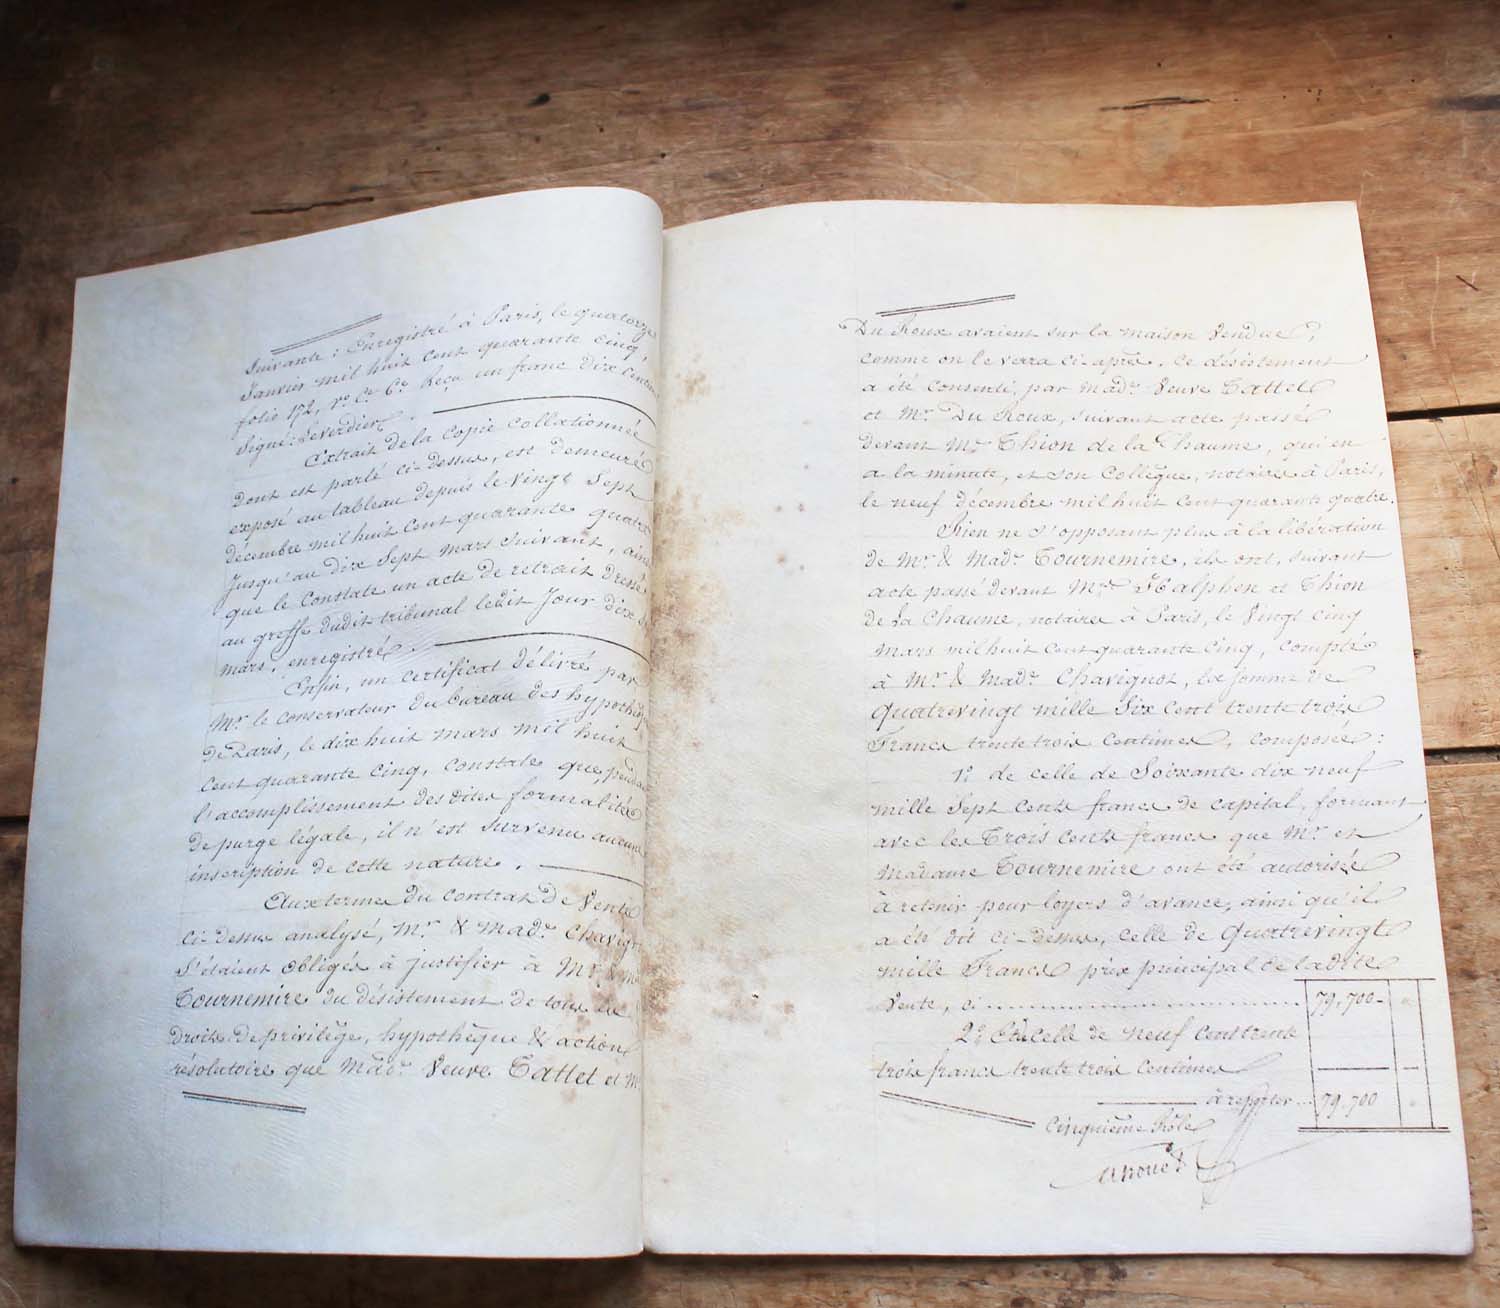 Suivante : Enregistré à Paris, le quatorze
Janvier mil huit cent quarante cinq,
folio 172, Vo Ce 6e Reçu un franc dix centimes
Signé : Leverdier.
Extrait de la copie collationnée
dont est parlé ci-dessus, est demeuré
exposé au tableau depuis le vingt Sept
décembre mil huit cent quarante quatre
Jusqu'au dix Sept mars Suivant, ainsi
que le constate un acte de retrait dressé
au greffe dudit tribunal ledit Jour dix S
mars, enregistré.
Enfin, un certificat délivré par
Mr. le Conservateur du bureau des hypothèq
de Paris, le dix huit mars mil huit
cent quarante cinq, constate que, pendant
l'accomplissement des dites formalités
de purge légale, il n'est survenu aucune
inscription de cette nature.
Aux termes du contrat de Vente
ci-dessus analysé, Mr. & Made. Chavign
S'étaient obligés à justifier à Mr. & M
Tournemire du désistement de tous les
droits de privilège, hypothèque & action
résolutoire que Made. Veuve Tattet et Mr
Du Roux avaient sur la maison vendue,
comme on le verra ci-après. Ce désistement
a été consenti, par Made. Veuve Tattet
et Mr. Du Roux, suivant acte passé
devant Me Thion de la Chaume, qui en
a la minute, et son Collègue, notaires à Paris,
le neuf décembre mil huit cent quarante quatre.
Rien ne s'opposant plus à la libération
de Mr. & Made. Tournemire, ils ont, suivant
acte passé devant Mes Halphen et Thion
de la Chaume, notaires à Paris, le vingt cinq
mars mil huit cent quarante cinq, compté
à Mr. & Made. Chavignot, la somme de
Quatrevingt mille Six Cent trente trois
Francs trente trois centimes, composée :
1o. de celle de Soixante dix neuf
mille Sept cents francs de capital, formant
avec les Trois cents francs que Mr. et
Madame Tournemire ont été autorisés
à retenir pour loyers d'avance, ainsi qu'il
a été dit ci-dessus, celle de Quatrevingt
mille Francs prix principal de ladite
Vente, ci 79,700 "
2o. Et celle de neuf cent trente
trois francs trente trois centimes
à reporter ... 79.700 "
Cinquième Rôle